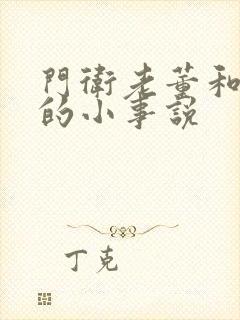 門衛老董和
的小事説
丁克